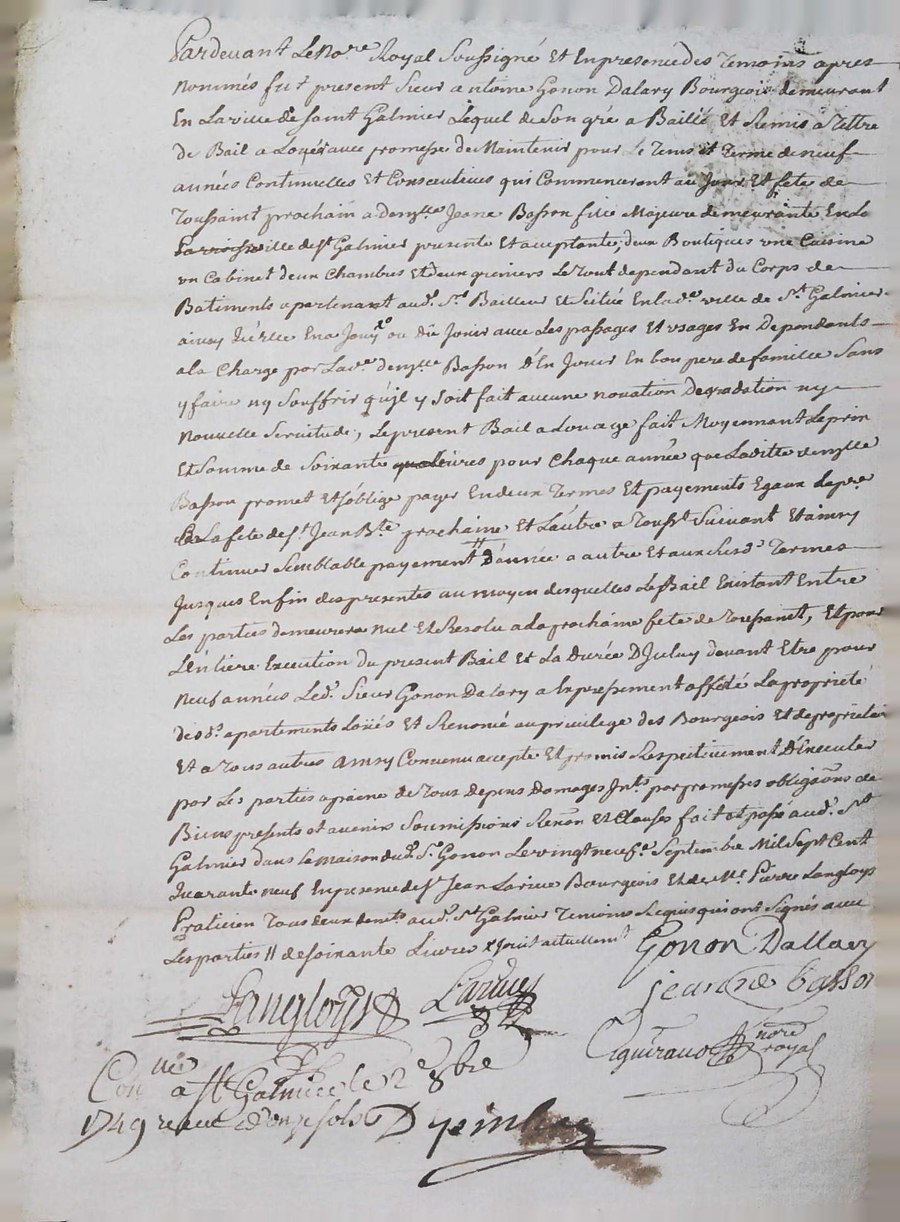 Pardevant Le No.re Royal Soussigné Et En presence des Temoins apres
nommés fut present Sieur antoine Gonon Dalary Bourgeois demeurant
En La ville de Saint Galmier Lequel de Son gré a Baillé Et Remis a Tiltre
de Bail a Loyer avec promesse de Maintenir pour Le Tems et Terme de neuf
années Continuelles Et Consecutives qui Commenceront au Jour Et fete de
Toussaint prochain a dem.lle Jeane Basson fille Majeure demeurante En La
ville de S.t Galmier presente Et aceptante, deux Boutiques une Cuisine
un Cabinet deux Chambres Et deux greniers Le Tout dependant du Corps de
Batiments apartenant aud. S.r Bailleur Et Scitué En lad.e ville de S.t Galmier
ainsy qu'elle En a Jouy ou dû Jouir avec Les passages Et usages En Dependants
a la Charge par Lad.e dem.lle Basson d'En Jouir En bon pere de famille Sans
y faire ny Souffrir qu'jl y Soit fait aucune novation Degradation ny
nouvelle Servitude, Le present Bail a Louage fait Moyennant Le prix
Et Somme de Soixante livres pour Chaque année que Laditte demlle
Basson promet Et s'oblige payer En deux Termes Et payements Egaux Le p.er
a La fete de S.t Jean B.te prochaine Et L'autre a Touss.t Suivant Et ainsy
Continuer Semblable payement // d'année a autre Et aux Susd.s Termes
Jusques En fin des presentes au moyen desquelles Le Bail Existant Entre
Les parties demeurera nul Et Resolu a la prochaine fete de Toussaint, Et pour
L'Entiere Execution du present Bail Et La Durée D'Iceluy devant Etre pour
neuf années Led. Sieur Gonon Dalary a Expressement affecté La propriété
desd.s apartements Loüés Et Renoncé au privilege des Bourgeois Et de proprietaire
Et a Tous autres ainsy Convenu accepté Et promis Respectivement D'Executer
par Les parties a peine de Tous depens Domages Int.s par promesses obligaōns de
Biens presents et avenirs Soumissions Renōn Et Clauses fait et passé aud. S.t
Galmier dans La maison dud. S.r Gonon Le vingt neuf.e Septembre Mil Sept Cent
Quarante neuf En presence de S.r Jean Larue Bourgeois Et de M.e Pierre Langloys
Praticien Tous deux dem.ts aud. S.t Galmier Temoins Requis qui ont Signés avec
Les parties // de soixante Livres actuellem.t
Gonon Dallary
jeanne basson
Langloys Larue
no.re royal
Con.llé a S.t Galmier le 2 8bre
1749 recu douze sols